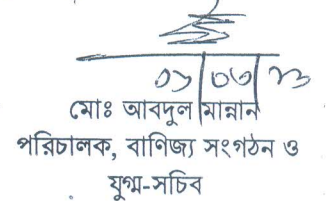 ০১/০৩/২৩
মোঃ আবদুল মান্নান
পরিচালক, বাণিজ্য সংগঠন ও
যুগ্ম-সচিব